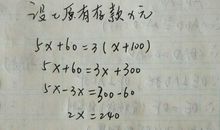 设七原有存款x元
5x+60=3(x+100)
5x+60=3x+300
5x-3x=300-60
2x=240